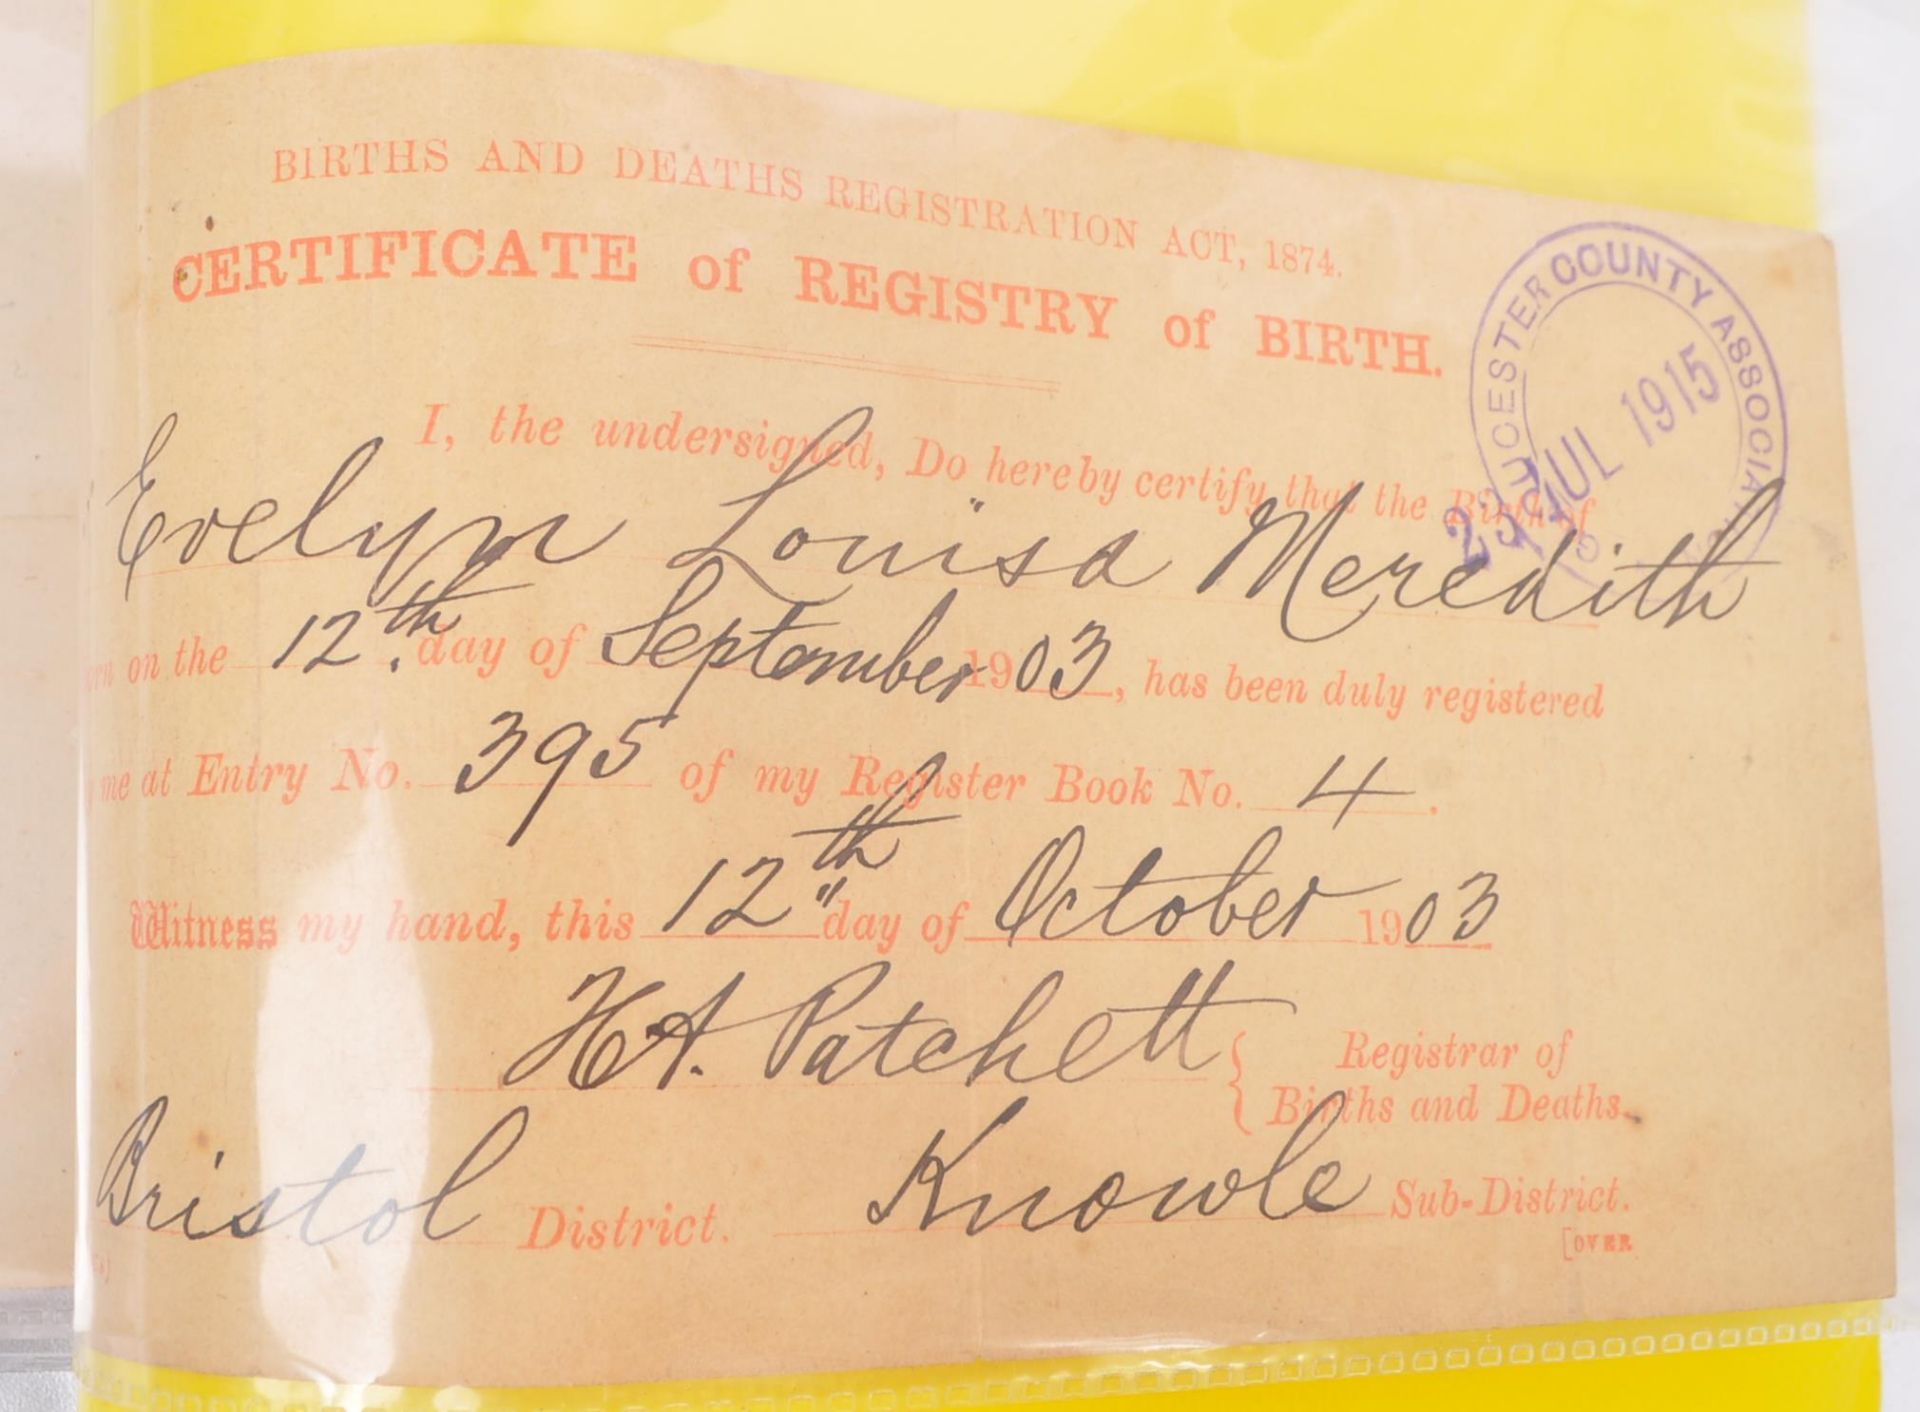 BIRTHS AND DEATHS REGISTRATION ACT, 1874.
CERTIFICATE of REGISTRY of BIRTH.
UCESTER COUNTY ASSOCIA
23 JUL 1915
I, the undersigned, Do hereby certify that the Birth of
Evelyn Louisa Meredith
on the 12th day of September 1903, has been duly registered
me at Entry No. 395 of my Register Book No. 4.
Witness my hand, this 12th day of October 1903
H A. Patchett { Registrar of
Births and Deaths.
Bristol District. Knowle Sub-District.
[OVER